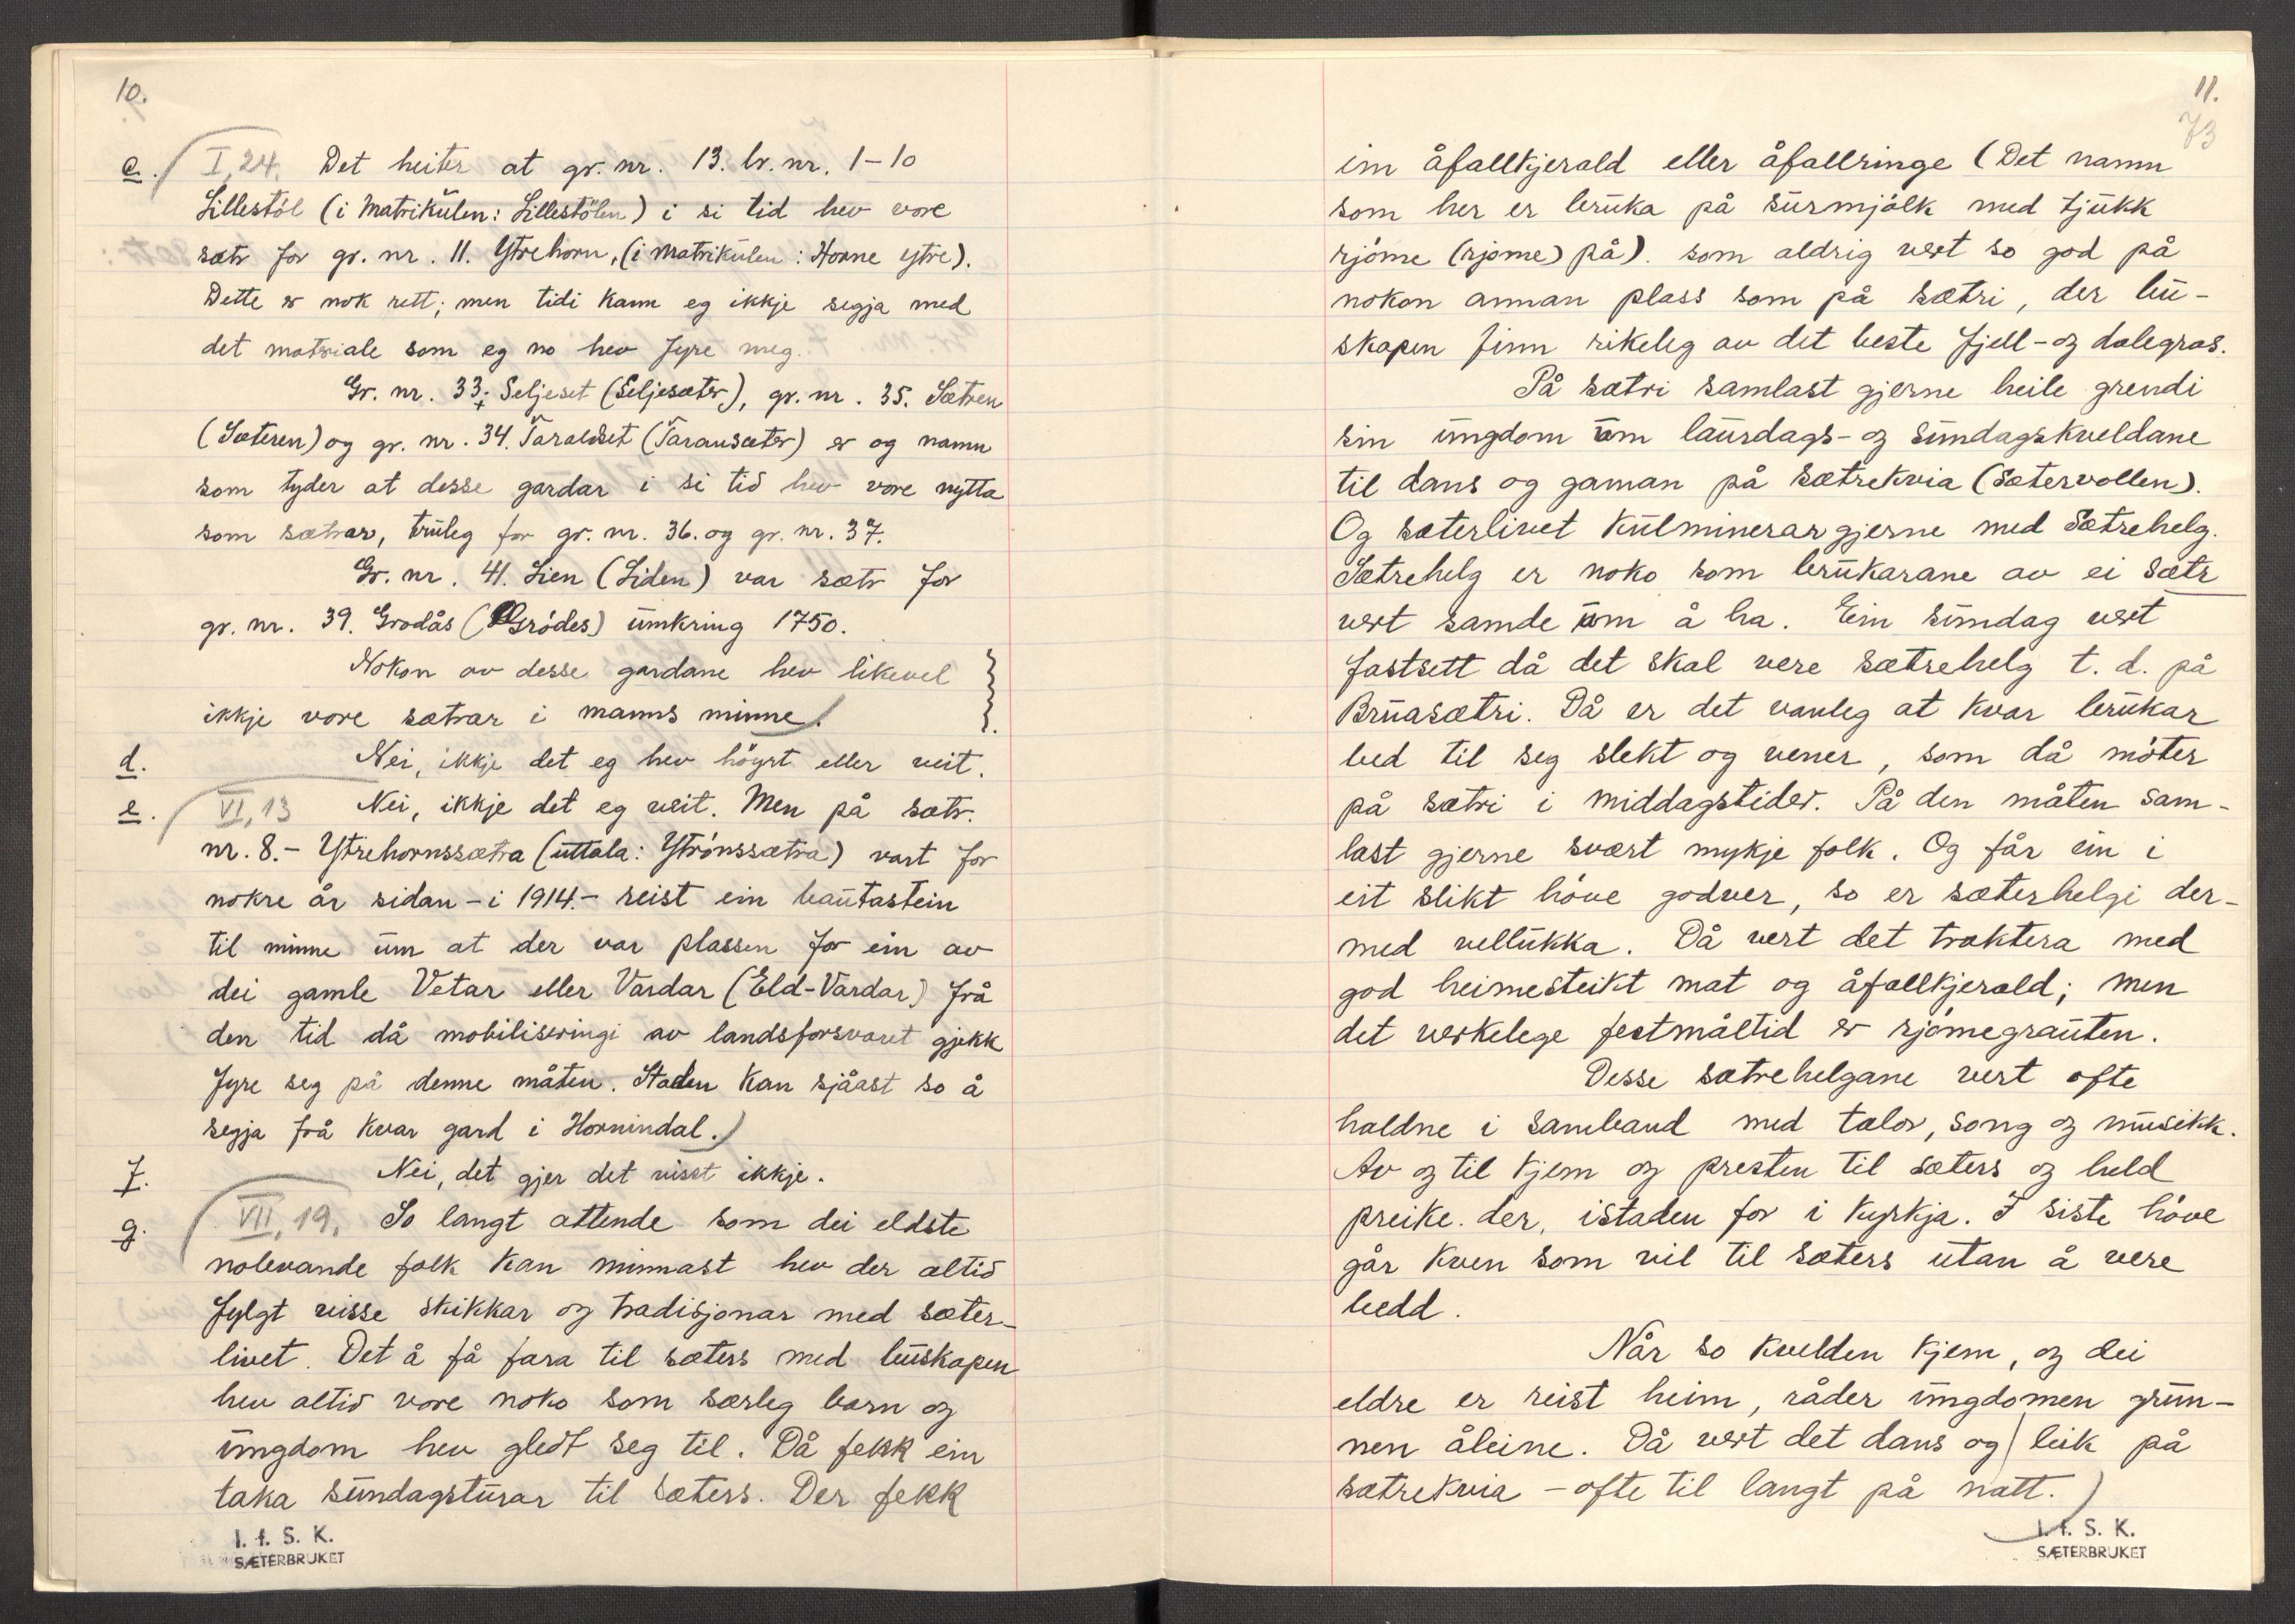 10.
c. I, 24. Det heiter at gr. nr. 13. br. nr. 1-10
Lillestöl (i Matrikulen: Lillestölen) i si tid hev vore
sætr for gr. nr. 11. Ytrehorn, (i matrikulen: Horne ytre).
Dette er nok rett; men tidi kann eg ikkje segja med
det matriale som eg no hev fyre meg.
Gr. nr. 33. Seljeset (Seljesæter), gr. nr. 35. Sætren
(Sæteren) og gr. nr. 34. Taraldset (Taransæter) er og namn
som tyder at desse gardar i si tid hev vore nytta
som sætrar, truleg for gr. nr. 36. og gr. nr. 37.
Gr. nr. 41. Lien (Liden) var sætr for
gr. nr. 39. Grodås (Grödes) umkring 1750.
Nokon av desse gardane hev likevel
ikkje vore sætrar i manns minne.
d. Nei, ikkje det eg hev höyrt eller veit.
e. VI, 13 Nei, ikkje det eg veit. Men på sætr.
nr. 8.- Ytrehornssætra (uttala: Ytrónssætra) vart for
nokre år sidan - i 1914.- reist ein bautastein
til minne um at der var plassen for ein av
dei gamle Vetar eller Vardar (Eld-Vardar) frå
den tid då mobiliseringi av landsforsvaret gjekk
fyre seg på denne måten. Staden kan sjåast so å
segja frå kvar gard i Hornindal.)
f. Nei, det gjer det visst ikkje.
g. VII, 19. So langt attende som dei eldste
nolevande folk kan minnast hev der altid
fylgt visse skikkar og tradisjonar med sæter-
livet. Det å få fara til sæters med buskapen
hev altid vore noko som særleg born og
ungdom hev gledt seg til. Då fekk ein
taka sundagsturar til sæters. Der fekk
I. f. S. K.
SÆTERBRUKET
11.
73
ein åfallkjerald eller åfallringe (Det namn
som her er bruka på surmjölk med tjukk
rjöme (rjome) på). som aldrig vert so god på
nokon annan plass som på sætri, der bu-
skapen finn rikeleg av det beste fjell- og dalegras.
På sætri samlast gjerne heile grendi
sin ungdom um laurdags- og sundagskveldane
til dans og gaman på sætrekvia (Sætervollen).
Og sæterlivet kulminerar gjerne med Sætrehelg.
Sætrehelg er noko som brukarane av ei sætr
vert samde um å ha. Ein sundag vert
fastsett då det skal vere sætrehelg t. d. på
Bruasætri. Då er det vanleg at kvar brukar
bed til seg slekt og vener, som då möter
på sætri i middagstider. På den måten sam-
last gjerne svært mykje folk. Og får ein i
eit slikt höve godver, so er sæterhelgi der-
med vellukka. Då vert det traktera med
god heimesteikt mat og åfallkjerald; men
det verkelege festmåltid er rjömegrauten.
Desse sætrehelgane vert ofte
haldne i samband med talor, song og musikk.
Av og til kjem og presten til sæters og held
preike. der, istaden for i kyrkja. I siste höve
går kven som vil til sæters utan å vere
bedd.
Når so kvelden kjem, og dei
eldre er reist heim, råder ungdomen grun-
nen åleine. Då vert det dans og leik på
sætrekvia - ofte til langt på natt.)
I. f. S. K.
SÆTERBRUKET